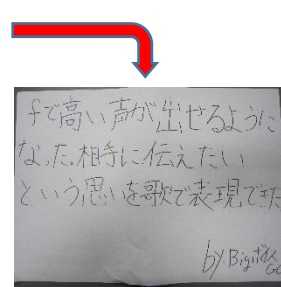 fで高い声が出せるように
なった。相手に伝えたい
という思いを歌で表現できた
by.Bigボイス